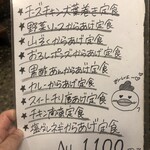 ★チーズチキン大葉巻き定食
★野菜ソースからあげ定食
★山ちくからあげ定食
★おろしポン酢からあげ定食
★黒酢あんからあげ定食
★カレーからあげ定食
★スイートチリ唐あげ定食
★チキン南蛮定食
★塩だレネギからあげ定食
ALL 1100円